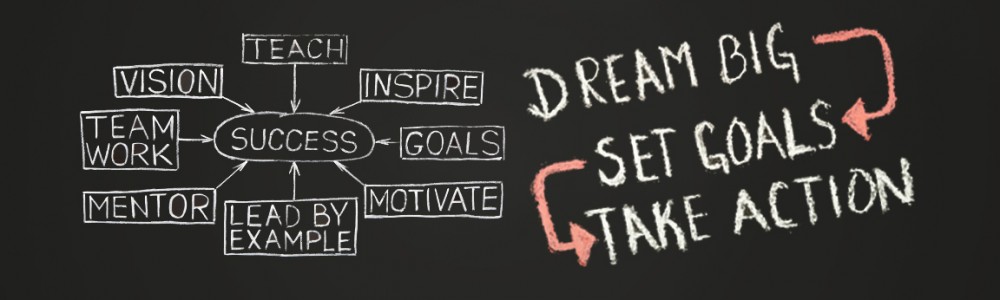 TEACH
VISION
INSPIRE
TEAM
WORK
SUCCESS
GOALS
MENTOR
LEAD BY
EXAMPLE
MOTIVATE
DREAM BIG
SET GOALS
TAKE ACTION